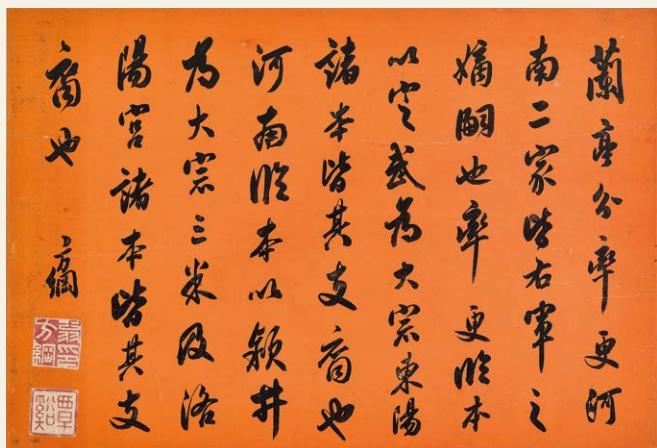 蘭亭分率更河
南二家皆右軍之
嫡嗣也率更臨本
以定武為大宗東陽
諸本皆其支裔也
河南臨本以潁井
為大宗三米及洛
陽宮諸本皆其支
裔也 方綱
翁印方綱
覃谿